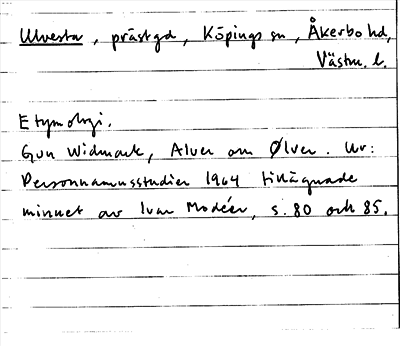 Ulvesta, prästgd, Köpings sn, Åkerbo hd,
Västm. l.
Etymologi.
Gun Widmark, Alver om Ølver. Ur:
Personnamnsstudier 1964 tillägnade
minnet av Ivar Modéer, s. 80 och 85.